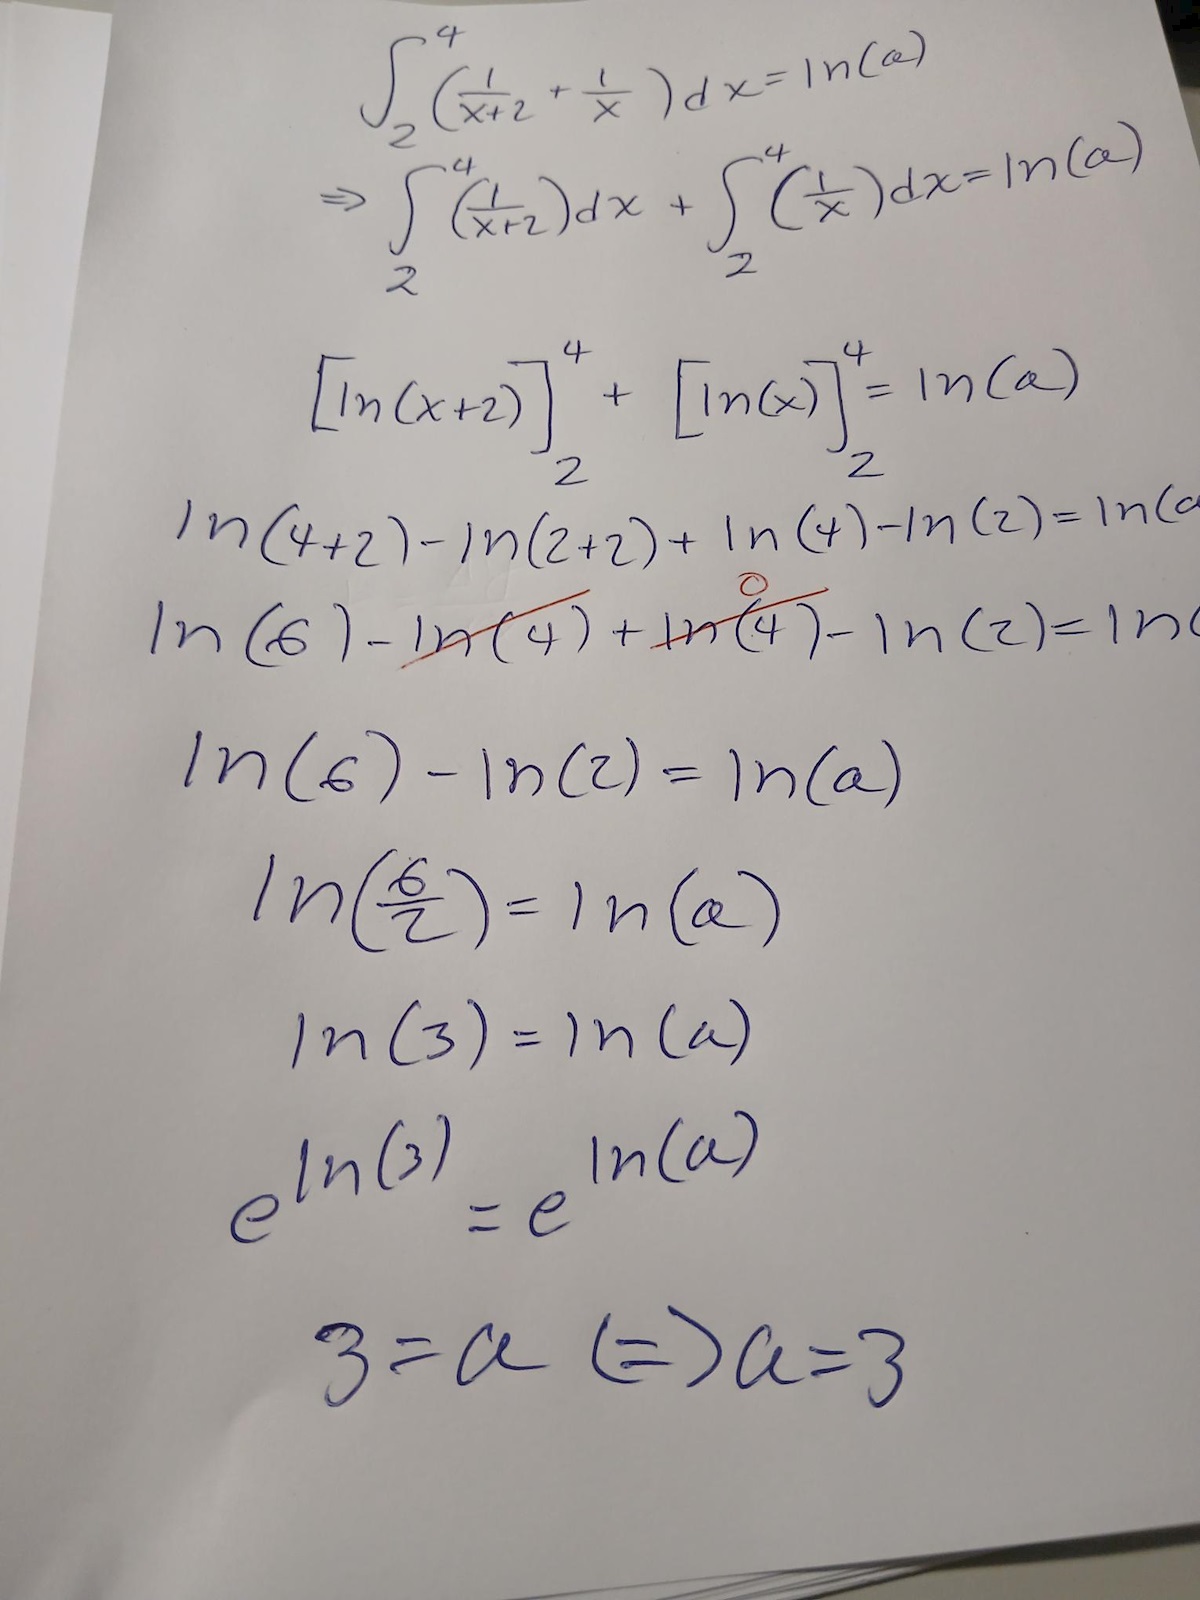 ∫₂⁴ (1/(x+2) + 1/x) dx = ln(a)
⇒ ∫₂⁴ (1/(x+2)) dx + ∫₂⁴ (1/x) dx = ln(a)
[ln(x+2)]₂⁴ + [ln(x)]₂⁴ = ln(a)
ln(4+2) - ln(2+2) + ln(4) - ln(2) = ln(a
0
ln(6) - ln(4) + ln(4) - ln(2) = ln(
ln(6) - ln(2) = ln(a)
ln(6/2) = ln(a)
ln(3) = ln(a)
e^ln(3) = e^ln(a)
3 = a (=) a = 3